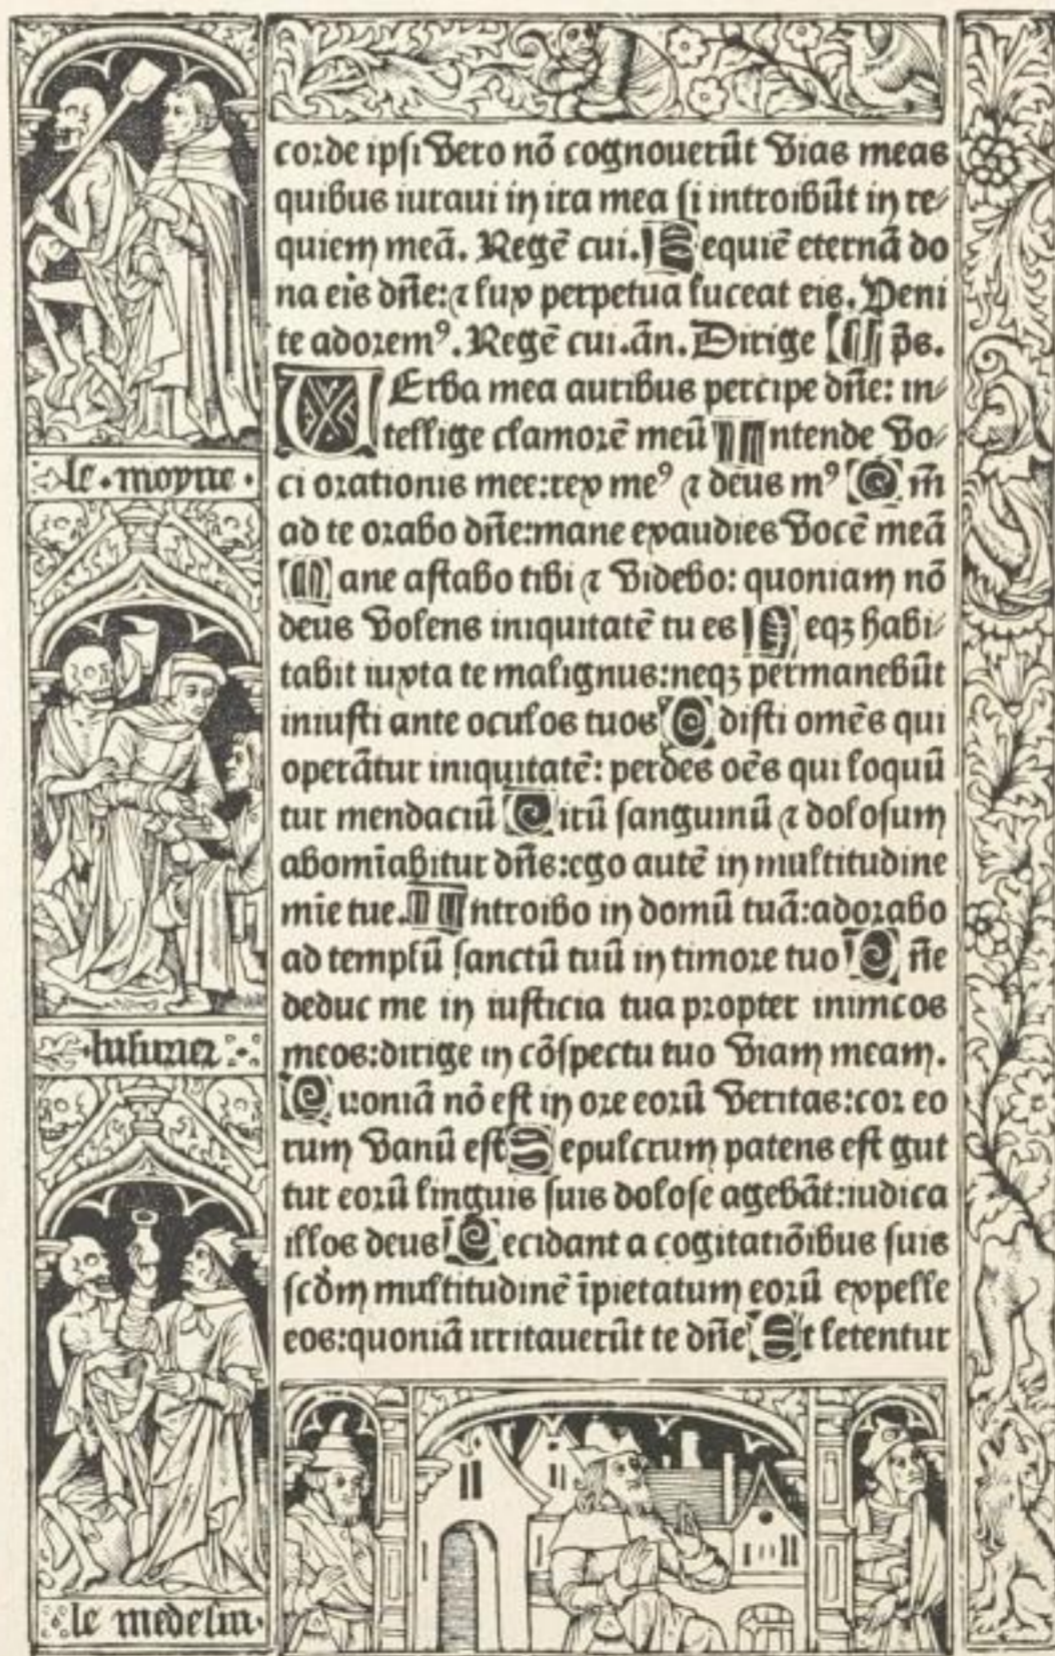 corde ipsi vero nõ cognouerũt vias meas
quibus iuraui in ira mea si introibũt in re⸗
quiem meã. Regẽ cui. Requiẽ eternã do
na eis dñe: ⁊ lux perpetua luceat eis. Veni
te adoremꝰ. Regẽ cui. ãn. Dirige p̃s.
VErba mea auribus percipe dñe: in⸗
tellige clamorẽ meũ Intende vo⸗
ci orationis mee: rex meꝰ ⁊ deus mꝰ Qm̃
ad te orabo dñe: mane exaudies vocẽ meã
Mane astabo tibi ⁊ videbo: quoniam nõ
deus volens iniquitatẽ tu es Neqꝫ habi⸗
tabit iuxta te malignus: neqꝫ permanebũt
iniusti ante oculos tuos Odisti omẽs qui
operãtur iniquitatẽ: perdes oẽs qui loquũ
tur mendaciũ Virũ sanguinũ ⁊ dolosum
abomĩabitur dñs: ego autẽ in multitudine
mie tue. Introibo in domũ tuã: adorabo
ad templũ sanctũ tuũ in timore tuo Dñe
deduc me in iusticia tua propter inimcos
meos: dirige in cõspectu tuo viam meam.
Quoniã nõ est in ore eorũ veritas: cor eo
rum vanũ est Sepulcrum patens est gut
tur eorũ linguis suis dolose agebãt: iudica
illos deus Decidant a cogitatiõibus suis
scd̃m multitudinẽ ĩpietatum eorũ expelle
eos: quoniã irritauerũt te dñe Et letentur
le moyne
lusurier
le medesin